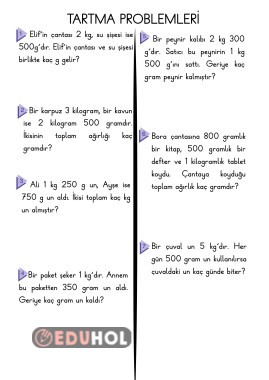 TARTMA PROBLEMLERİ
Elif'in çantası 2 kg, su şişesi ise
500g'dır. Elif'in çantası ve su şişesi
birlikte kaç g gelir?
Bir karpuz 3 kilogram, bir kavun
ise 2 kilogram 500 gramdır.
İkisinin toplam ağırlığı kaç
gramdır?
Ali 1 kg 250 g un, Ayşe ise
750 g un aldı. İkisi toplam kaç kg
un almıştır?
Bir paket şeker 1 kg'dır. Annem
bu paketten 350 gram un aldı.
Geriye kaç gram un kaldı?
Bir peynir kalıbı 2 kg 300
g'dır. Satıcı bu peynirin 1 kg
500 g'ını sattı. Geriye kaç
gram peynir kalmıştır?
Bora çantasına 800 gramlık
bir kitap, 500 gramlık bir
defter ve 1 kilogramlık tablet
koydu. Çantaya koyduğu
toplam ağırlık kaç gramdır?
Bir çuval un 5 kg'dır. Her
gün 500 gram un kullanılırsa
çuvaldaki un kaç günde biter?
EDUHOL